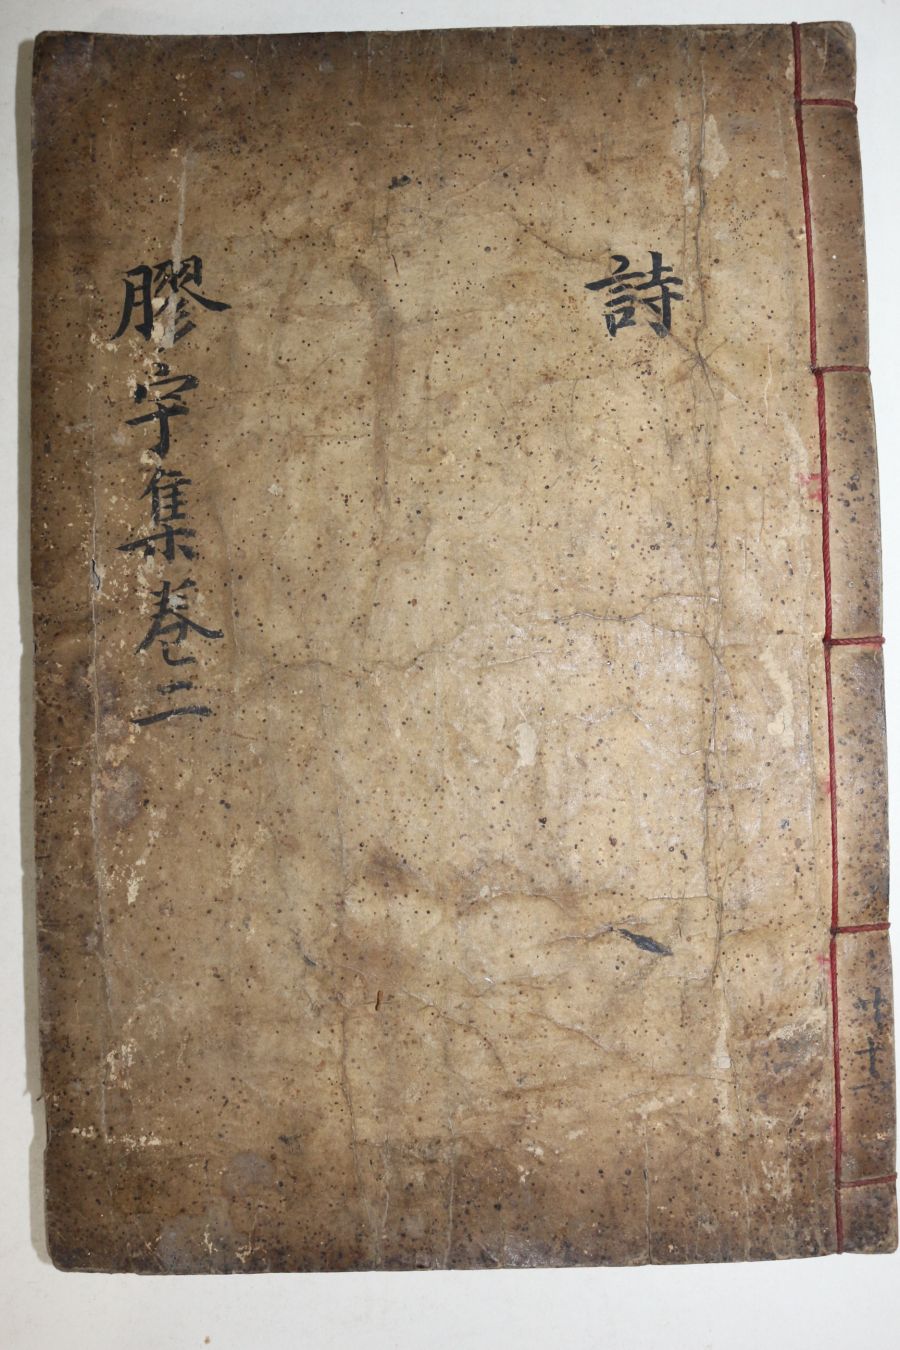 詩
膠宇集卷二